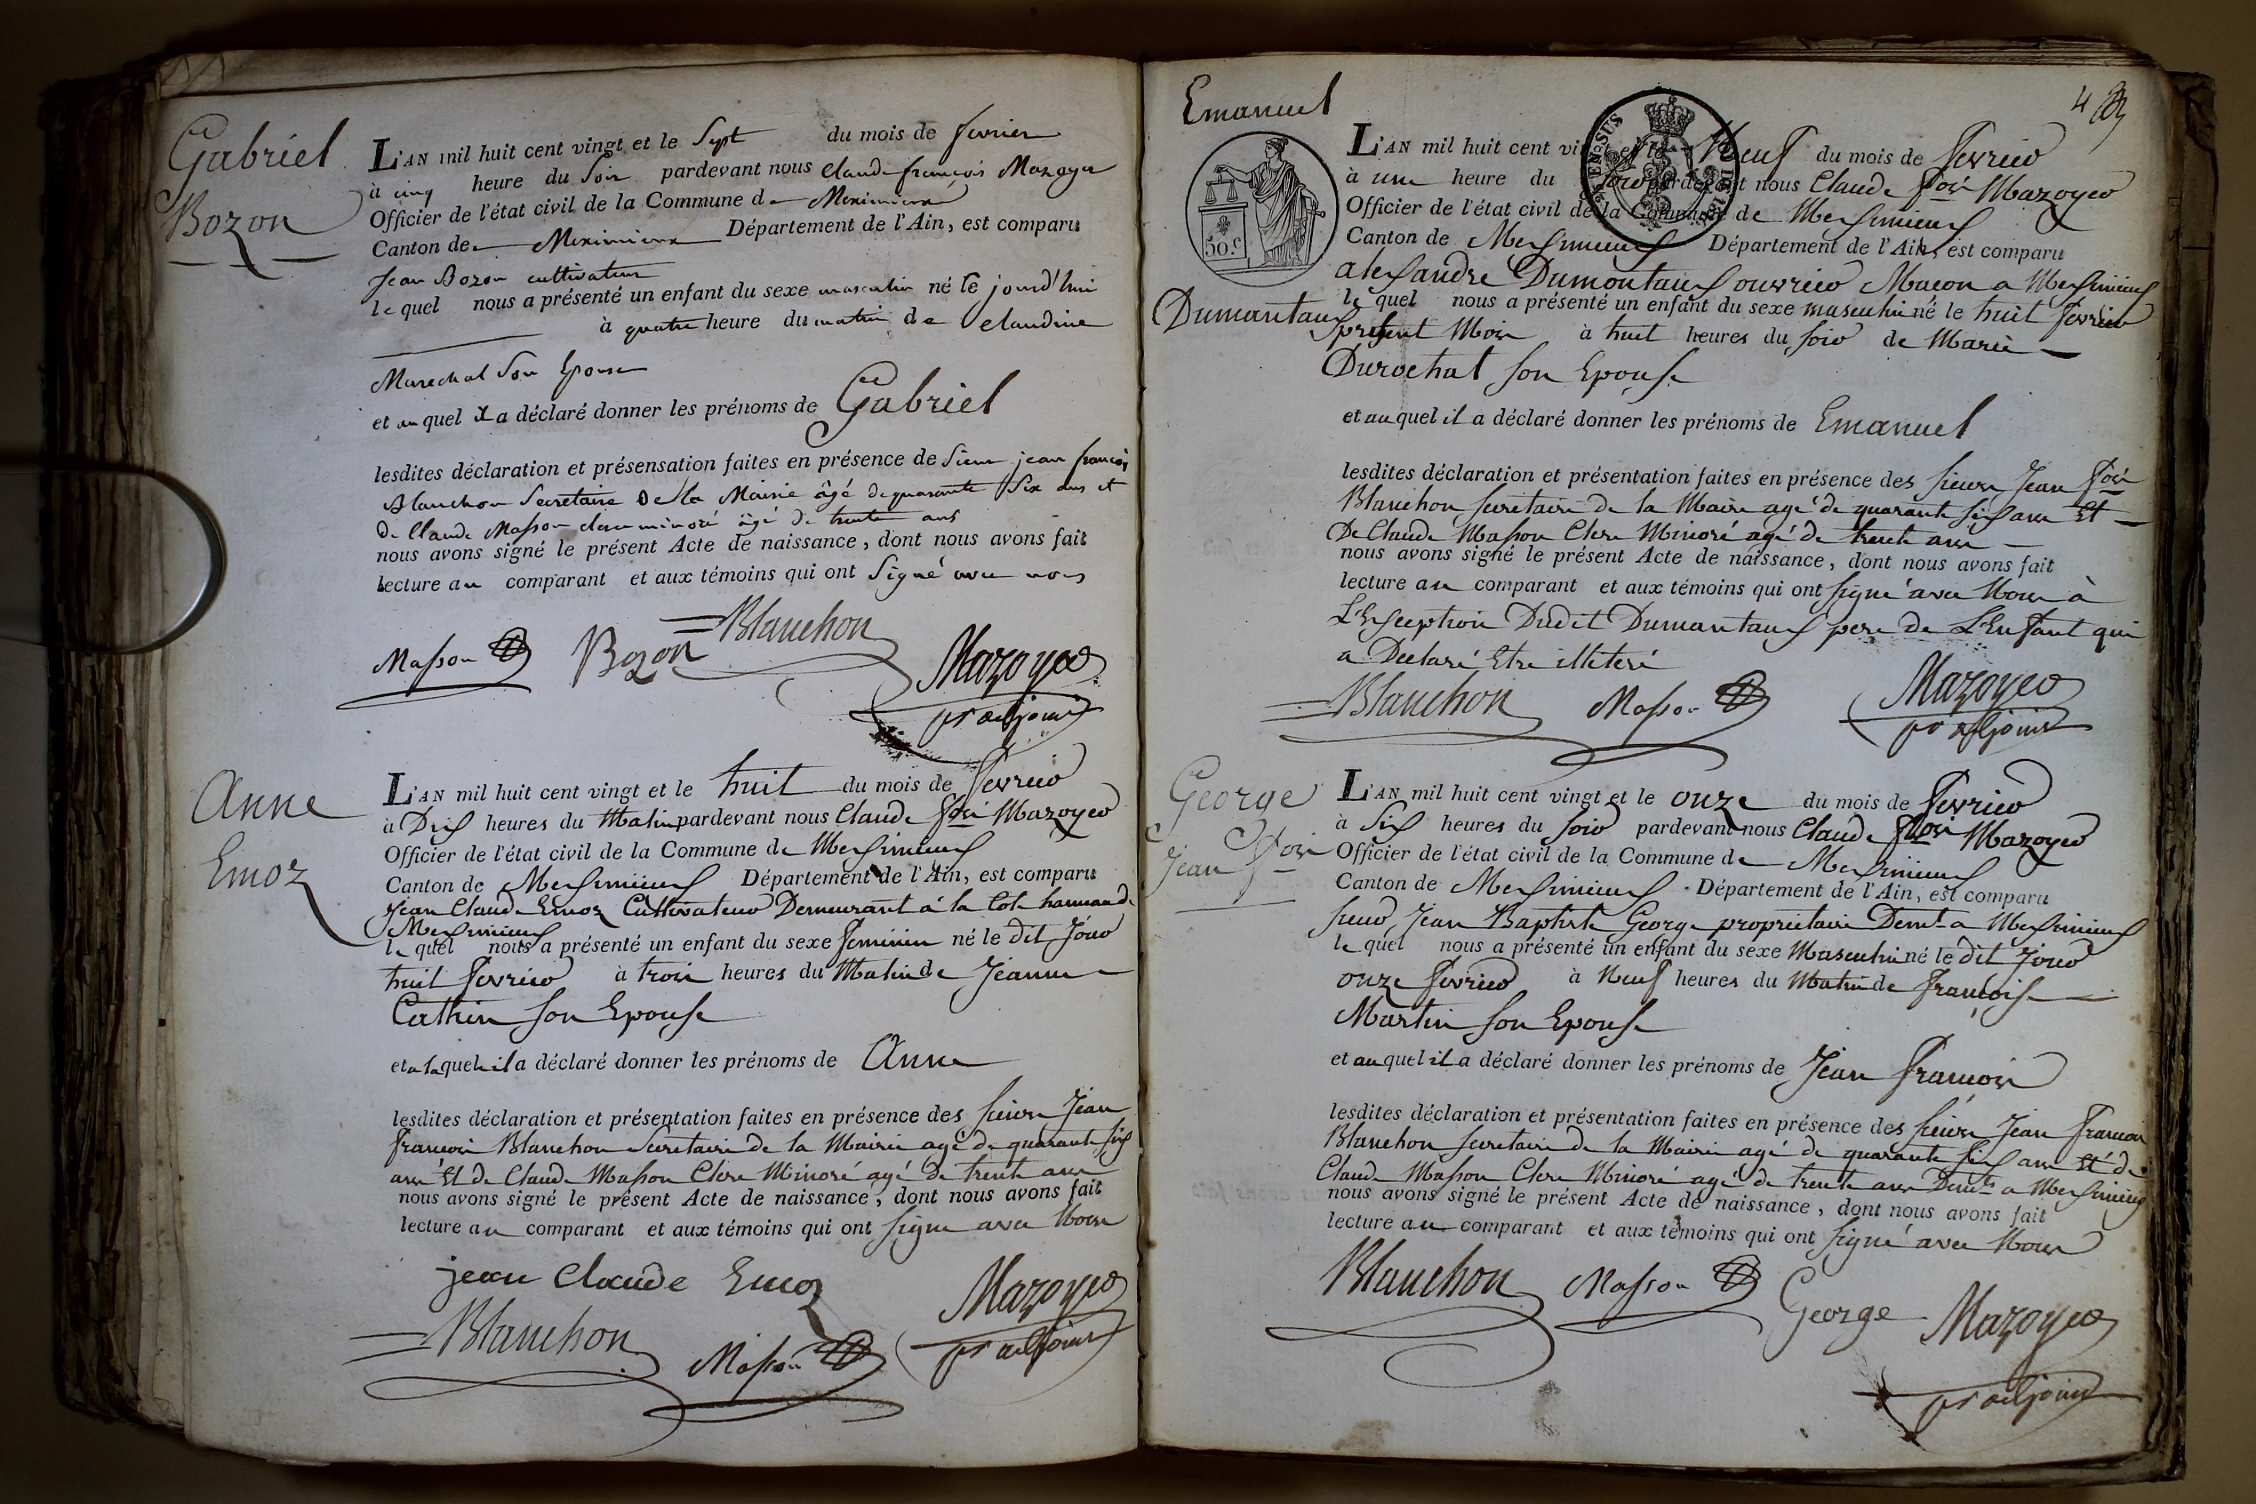 Gabriel
Bozon
L'AN mil huit cent vingt et le Sept du mois de fevrier
à cinq heure du Soir pardevant nous Claude françois Mazoyer
Officier de l'état civil de la Commune de Meximieux
Canton de Meximieux Département de l'Ain, est comparu
Jean Bozon cultivateur
le quel nous a présenté un enfant du sexe masculin né le jourd'hui
à quatre heure du matin de Claudine
Marechal Son Epouse
et au quel il a déclaré donner les prénoms de Gabriel
lesdites déclaration et présensation faites en présence de Sieur jean françois
Blanchon Secretaire De la Mairie âgé de quarante Six ans et
de Claude Masson clerc minoré âgé de trente ans
nous avons signé le présent Acte de naissance, dont nous avons fait
lecture au comparant et aux témoins qui ont Signé avec nous
Blanchon
Masson Bozon Mazoyer
pr adjoint
Anne
Emoz
L'AN mil huit cent vingt et le huit du mois de fevrier
à Dix heures du Matin pardevant nous Claude fois Mazoyer
Officier de l'état civil de la Commune de Meximieux
Canton de Meximieux Département de l'Ain, est comparu
Jean Claude Emoz Cultivateur Demeurant á la Cote hameau de
Meximieux
le quel nous a présenté un enfant du sexe feminin né le dit Jour
huit fevrier à trois heures du Matin de Jeanne
Cathin son Epouse
et a laquele il a déclaré donner les prénoms de Anne
lesdites déclaration et présentation faites en présence des sieurs Jean
françois Blanchon Secretaire de la Mairie agé de quarante six
ans Et de Claude Masson Clerc Minoré agé De trente ans
nous avons signé le présent Acte de naissance, dont nous avons fait
lecture au comparant et aux témoins qui ont signe avec Nous
jean Claude Emoz
Mazoyer
Blanchon Masson pr adjoint
4
Emanuel
50.c
Dumantaux
L'AN mil huit cent vingt et le Neuf du mois de fevrier
à une heure du soir pardevant nous Claude fois Mazoyer
Officier de l'état civil de la Commune de Meximieux
Canton de Meximieux Département de l'Ain, est comparu
alexandre Dumontaux ouvrier Macon a Meximieux
le quel nous a présenté un enfant du sexe masculin né le huit fevrier
present Mois à huit heures du soir de Marie
Durochat son Epouse
et au quel il a déclaré donner les prénoms de Emanuel
lesdites déclaration et présentation faites en présence des sieurs Jean fois
Blanchon secretaire de la Mairie agé de quarante six ans Et
De Claude Masson Clerc Minoré agé de trente ans
nous avons signé le présent Acte de naissance, dont nous avons fait
lecture au comparant et aux témoins qui ont signé avec Nous à
L'Exception Dudit Dumantaux pere de L'Enfant qui
a Declaré Etre illeteré
Blanchon Masson Mazoyer
pr adjoint
George
Jean fois
L'AN mil huit cent vingt et le onze du mois de fevrier
à Six heures du soir pardevant nous Claude fois Mazoyer
Officier de l'état civil de la Commune de Meximieux
Canton de Meximieux Département de l'Ain, est comparu
sieur Jean Baptiste George proprietaire Demt a Meximieux
le quel nous a présenté un enfant du sexe Masculin né le dit Jour
onze fevrier à Neuf heures du Matin de françoise
Martin son Epouse
et au quel il a déclaré donner les prénoms de Jean françois
lesdites déclaration et présentation faites en présence des sieurs Jean françois
Blanchon secretaire de la Mairie agé de quarante six ans Et de
Claude Masson Clerc Minoré agé de trente ans Demts a Meximieux
nous avons signé le présent Acte de naissance, dont nous avons fait
lecture au comparant et aux témoins qui ont signé avec Nous
Blanchon Masson George Mazoyer
pr adjoint